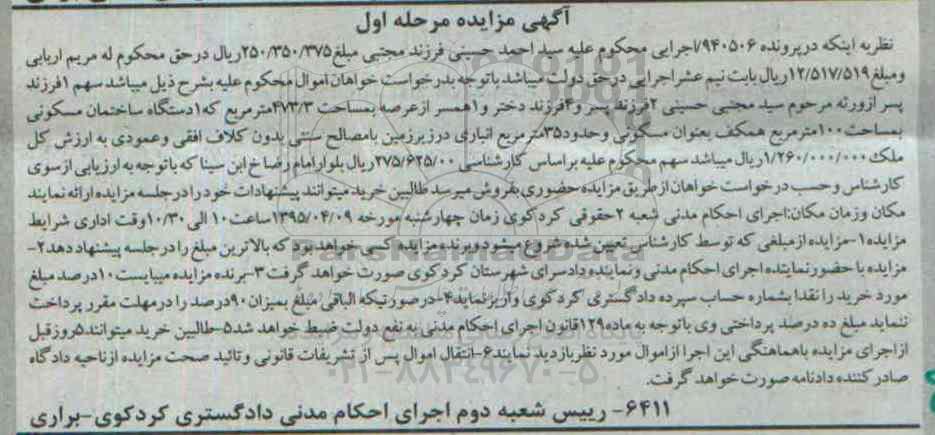 آگهی مزایده مرحله اول
نظر به اینکه در پرونده ۹۴۰۵۰۶/اجرایی محکوم علیه سید احمد حسینی فرزند مجتبی مبلغ ۲۵۰/۳۵۰/۳۷۵ریال در حق محکوم له مریم اربابی
ومبلغ ۱۲/۵۱۷/۵۱۹ریال بابت نیم عشر اجرایی در حق دولت میباشد باتوجه بدرخواست خواهان اموال محکوم علیه بشرح ذیل میباشد سهم ۱فرزند
پسر ازورثه مرحوم سید مجتبی حسینی ۲فرزند پسر و۴فرزند دختر و۱همسر ازعرصه بمساحت ۴۷۳/۳مترمربع که ۱دستگاه ساختمان مسکونی
بمساحت ۱۰۰مترمربع همکف بعنوان مسکونی وحدود۳۵مترمربع انباری درزیرزمین بامصالح سنتی بدون کلاف افقی وعمودی به ارزش کل
ملک ۱/۲۶۰/۰۰۰/۰۰۰ریال میباشد سهم محکوم علیه براساس کارشناسی ۲۷۵/۶۲۵/۰۰ریال بلوار امام رضا خ ابن سینا که باتوجه به ارزیابی ازسوی
کارشناس وحسب درخواست خواهان ازطریق مزایده حضوری بفروش میرسد طالبین خرید میتوانند پیشنهادات خود را درجلسه مزایده ارائه نمایند
مکان وزمان مکان:اجرای احکام مدنی شعبه ۲حقوقی کردکوی زمان چهارشنبه مورخه ۱۳۹۵/۰۴/۰۹ساعت ۱۰ الی ۱۰/۳۰وقت اداری شرایط
مزایده۱-مزایده ازمبلغی که توسط کارشناس تعیین شده شروع میشود وبرنده مزایده کسی خواهد بود که بالاترین مبلغ را درجلسه پیشنهاد دهد۲-
مزایده با حضورنماینده اجرای احکام مدنی ونماینده دادسرای شهرستان کردکوی صورت خواهد گرفت ۳-برنده مزایده میبایست ۱۰درصد مبلغ
مورد خرید را نقدا بشماره حساب سپرده دادگستری کردکوی واریز نماید۴-درصورتیکه الباقی مبلغ بمیزان ۹۰درصد را درمهلت مقرر پرداخت
ننماید مبلغ ده درصد پرداختی وی باتوجه به ماده۱۲۹قانون اجرای احکام مدنی به نفع دولت ضبط خواهد شد۵-طالبین خرید میتوانند۵روزقبل
ازاجرای مزایده باهماهنگی این اجرا ازاموال مورد نظربازدید نمایند۶-انتقال اموال پس از تشریفات قانونی وتائید صحت مزایده ازناحیه دادگاه
صادرکننده دادنامه صورت خواهد گرفت.
۶۴۱۱- رییس شعبه دوم اجرای احکام مدنی دادگستری کردکوی-براری
ParsNamadData
۰۲۱-۸۸۳۴۹۶۷۰-۵